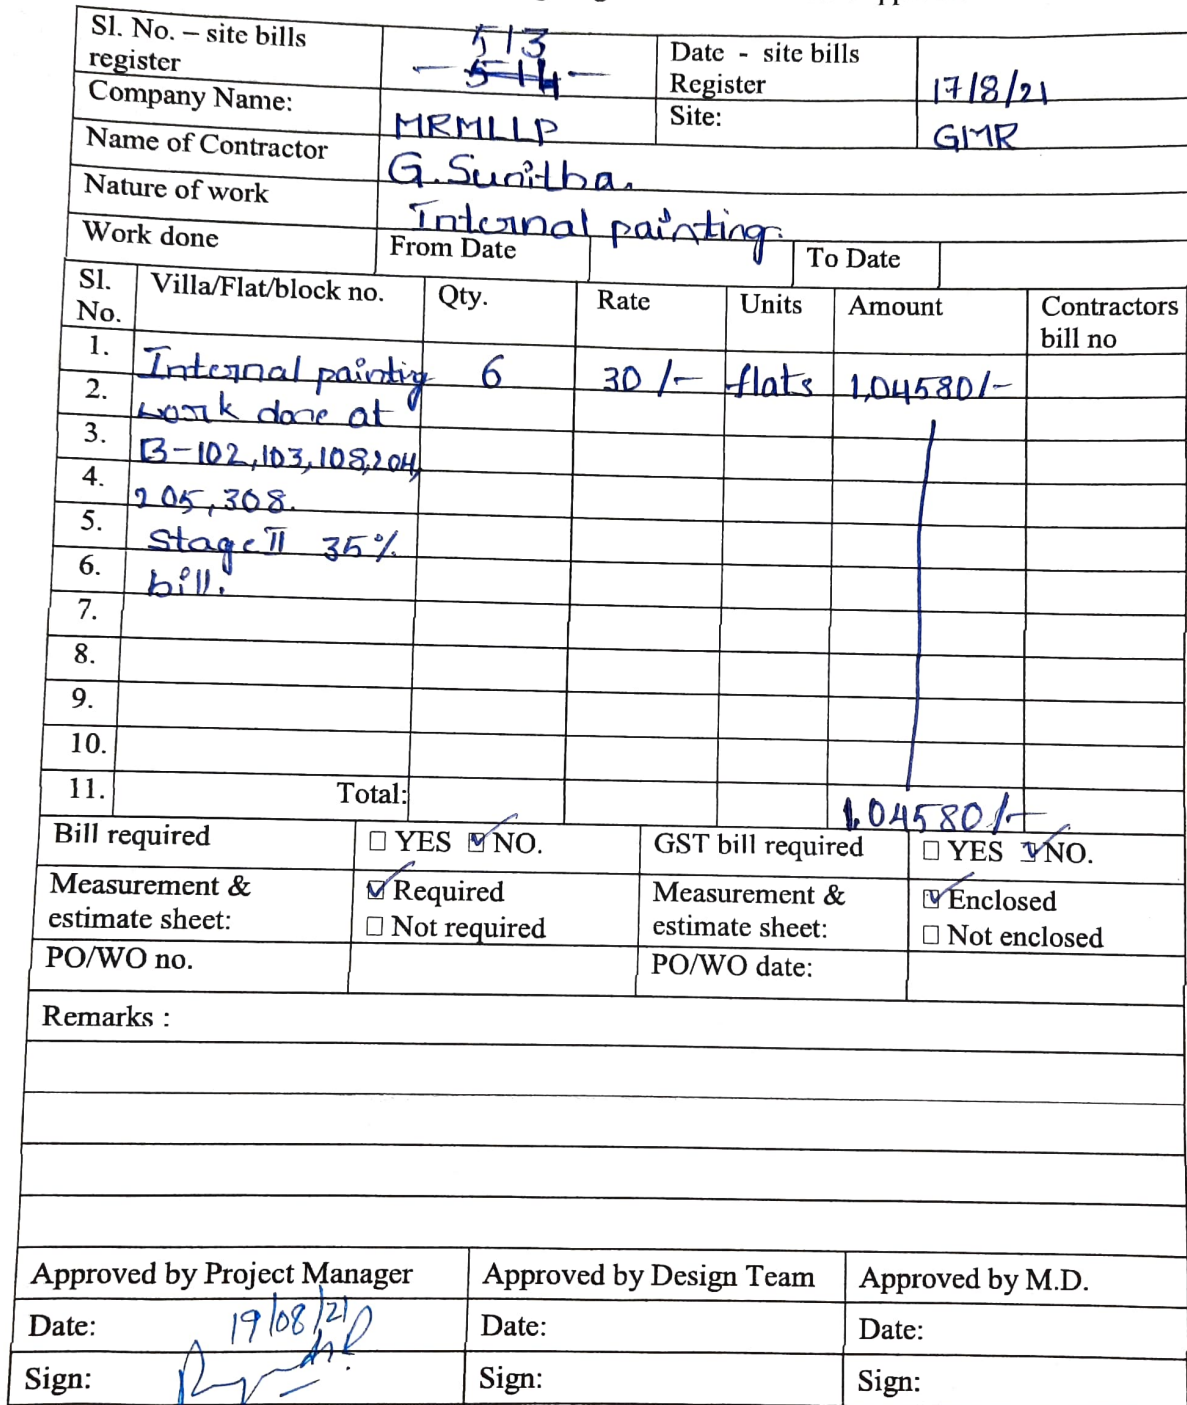 Sl. No. – site bills register 513 Date - site bills Register 17/8/21
514
Company Name: MRMLLP Site: GMR
Name of Contractor G. Sunitha.
Nature of work Internal painting.
Work done From Date To Date
Sl. No. Villa/Flat/block no. Qty. Rate Units Amount Contractors bill no
1. Internal paintig 6 30/- flats 1,04580/-
2. work done at
3. B-102,103,108,204,
4. 205,308.
5. Stage II 35%
6. bill.
7.
8.
9.
10.
11. Total: 1,04580/-
Bill required YES NO. GST bill required YES NO.
Measurement & estimate sheet: Required Measurement & estimate sheet: Enclosed
Not required Not enclosed
PO/WO no. PO/WO date:
Remarks :
Approved by Project Manager Approved by Design Team Approved by M.D.
Date: 19/08/21 Date: Date:
Sign: Sign: Sign: